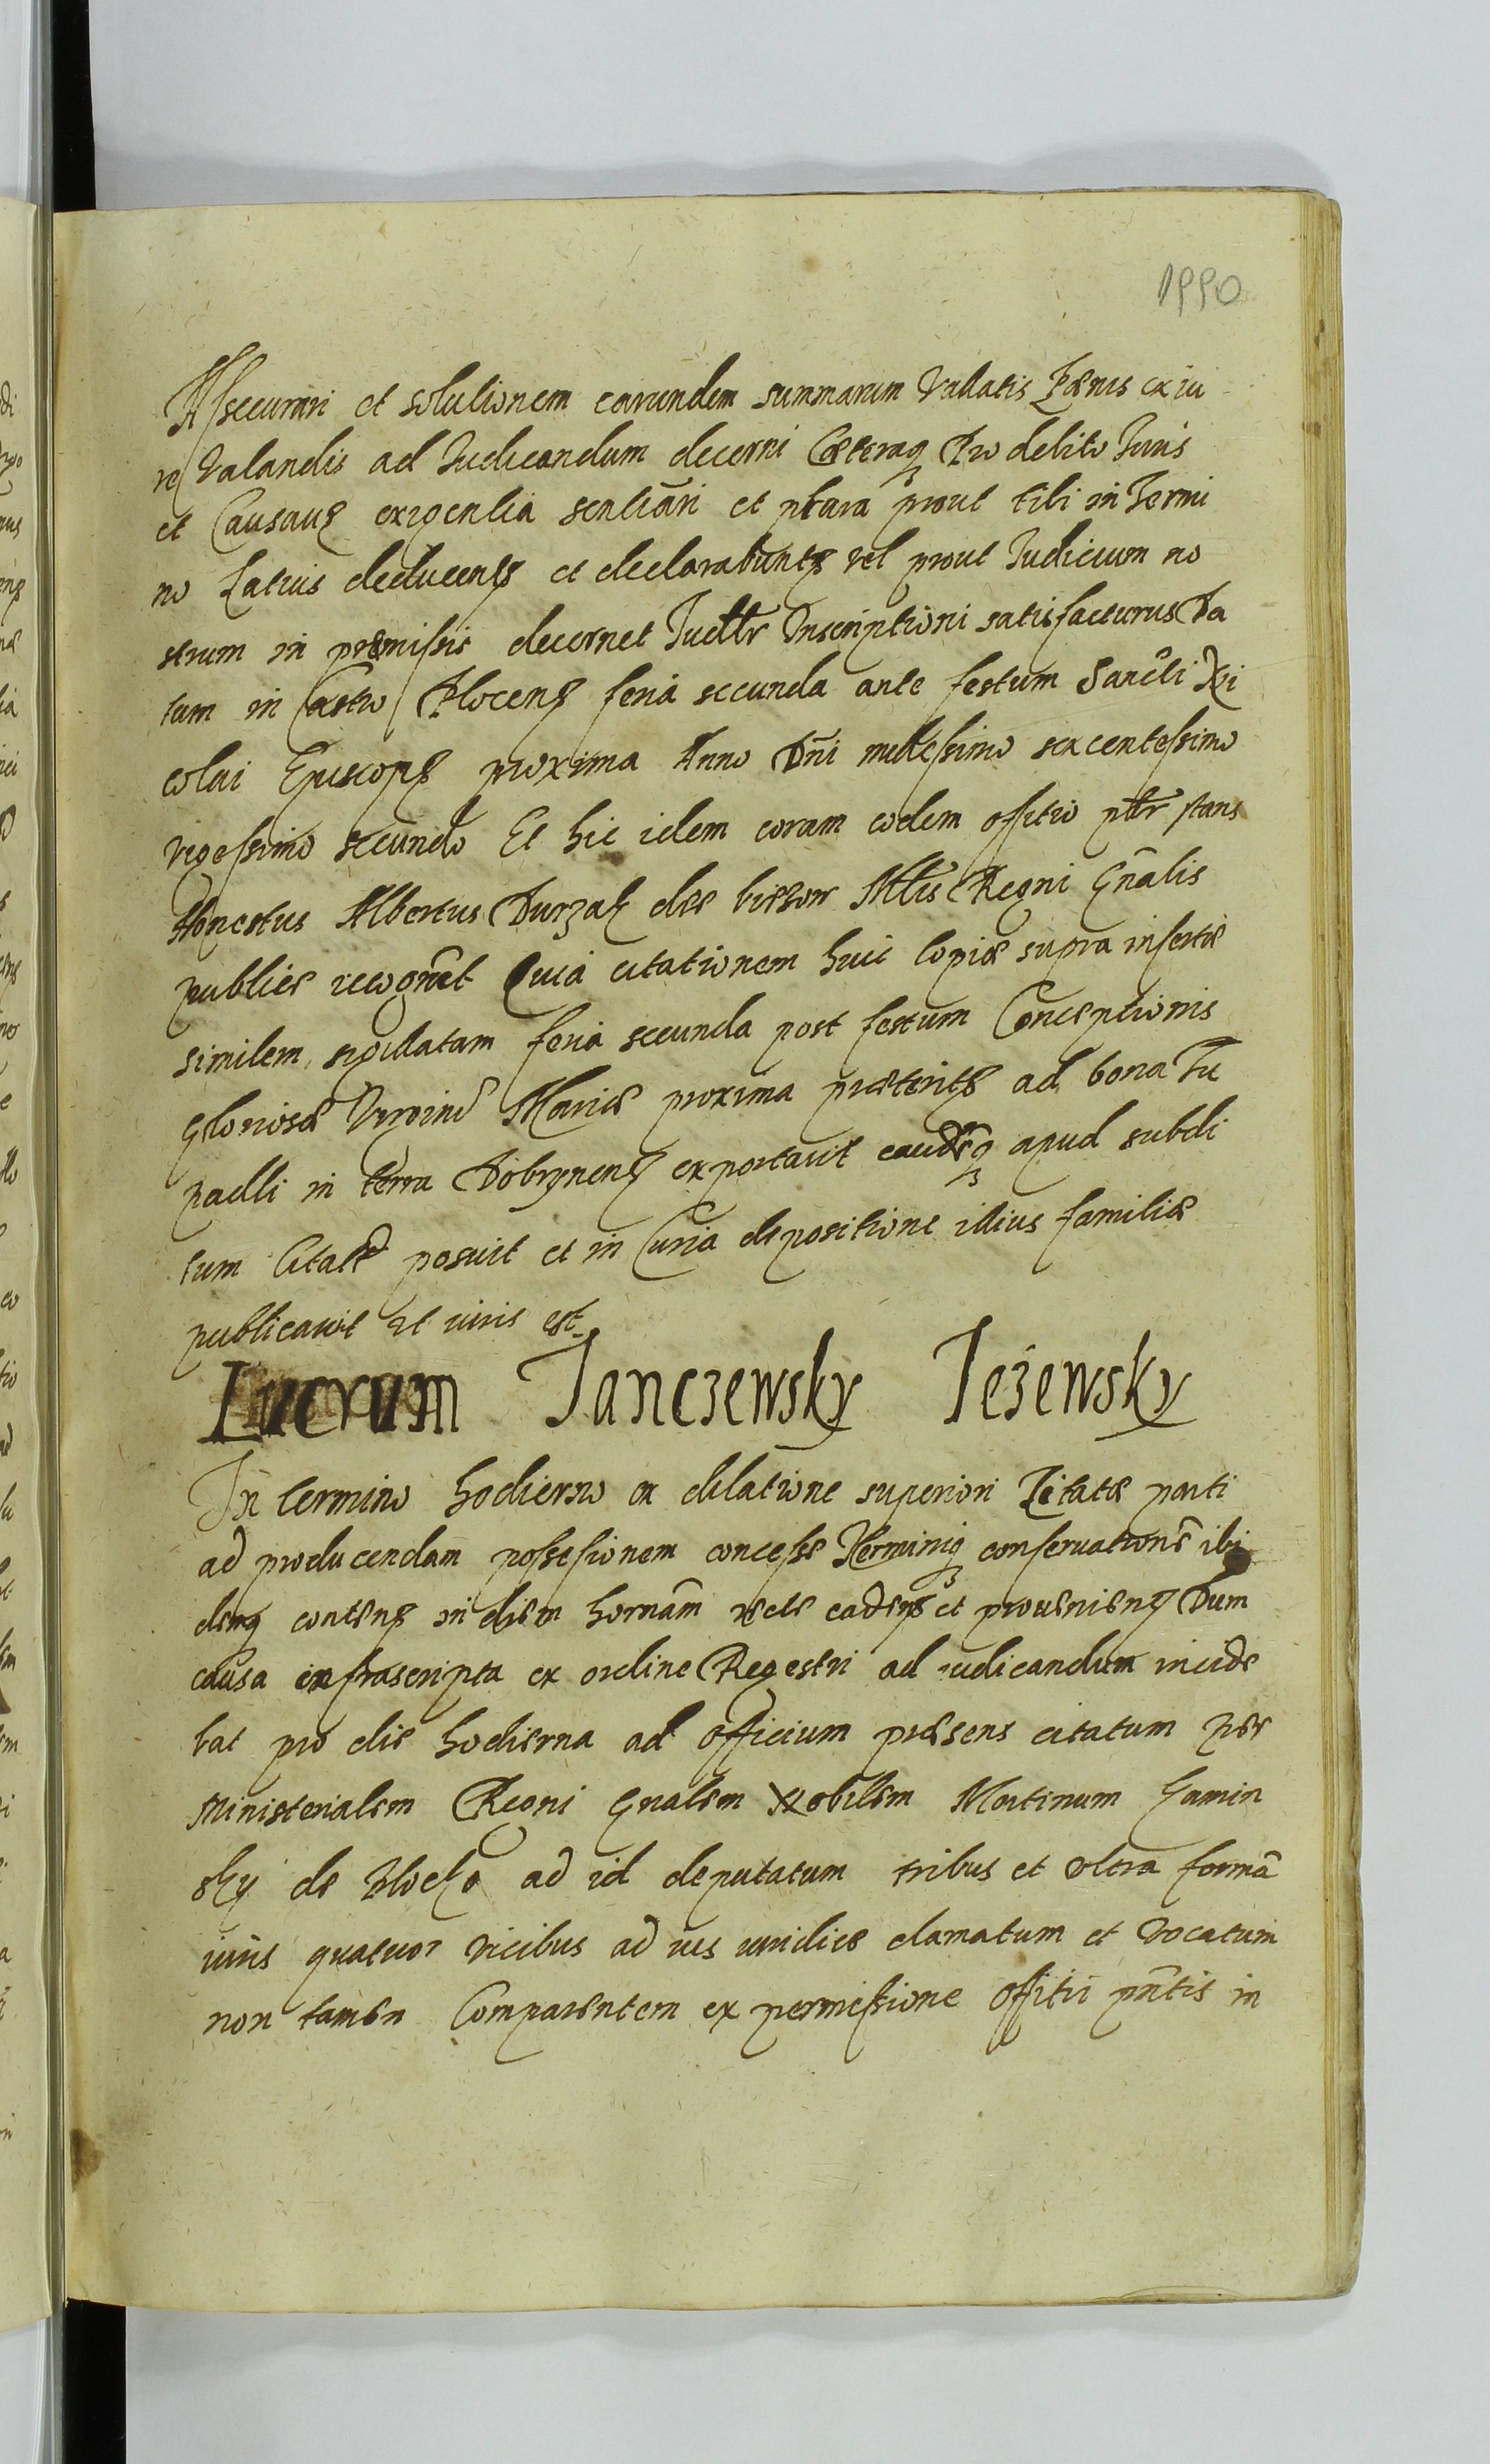 1990
Assecurari et solutionem earundem summarum Vallatis Pænis ex iu
re Valandis ad Iudicandum decerni Cæteraq Pro debito Iuris
et Causaus exigentia sentiari et ptara prout tibi in Termi
no Latius deducents et declarabunts vel prout Iudicium no
strum in præmissis decernet Iudltr Inscriptioni satisfacturus Da
tum in Castro Plocens feria secunda ante festum Sancti Ni
colai Episcops proxima Anno Dni millessimo sexcentessimo
vigessimo secundo Et hic idem coram eodem offitio pltr stans
Honestus Albertus Durzak de Mtlis Regni Gnalis
publice recognt Quia citationem huic Copiæ supra insertæ
similem sigillatam feria secunda post festum Conceptionis
Gloriosæ Virginis Mariæ proxima præterits ad bona Tu
padli in terra Dobrynens exportavit eandeq apud subdi
tum Citate posuit et in Curia depositione illius familiæ
publicavit Ut iuris est
Lucrum Janczewsky Jeżewsky
In termino hodierno ex dilatione superiori Citatæ parti
ad producendam possesionem concesse Terminiq conservatione ibi
demq contens in diem hornam recte cadens et proveniens Dum
causa infrascripta ex ordine Regestri ad iudicandum incide
bat pro die hodierna ad officium præsens citatum per
Ministerialem Regni Gnalem Nobilem Martinum Kamin
sky de Plocko ad id deputatum tribus et oltra formā
iuris quatuor vicibus ad ius iuridice clamatum et vocatum
non tamen Comparentem ex permissione offitii pntis in